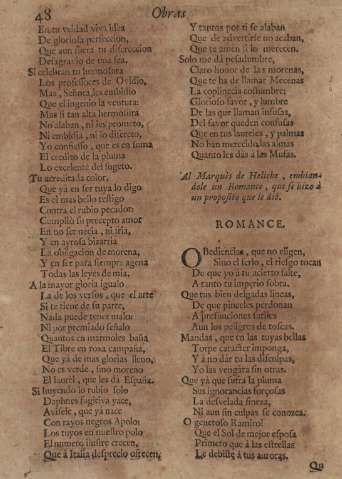 48
Obras
En tu veldad viva idea
De gloriosa perfeccion,
Que aun fuera tu discreccion
Desagravio de una fea.
Si celebran tu hermosura
Los professores de Ovidio,
Mas, Señora, les embidio
Que el ingenio la ventura:
Mas si tan alta hermosura
No alaban, ni les prometo,
Ni embidia, ni lo discreto,
Yo confiesso, que es en suma
El credito de la pluma
Lo excelente del sugeto.
Tu acredita la color,
Que yà en ser tuya lo digo
Es el mas bello testigo
Contra el rubio pecador:
Cumpliò su precepto amor
En no ser necia, ni fria,
Y en ayrosa bizarria
La obligacion de morena,
Y en ser para siempre agena
Todas las leyes de mia.
A la mayor gloria igualo
La de los versos, que el arte
Si te tiene de su parte,
Nada puede tener malo:
Ni por premiado señalo
Quantos en marmoles baña
El Tibre en roxa campaña,
Que yà de mas glorias lleno,
No es verde, sino moreno
El laurèl, que les dà España.
Si huyendo lo rubio solo
Daphnes fugitiva yace,
Avisele, que ya nace
Con rayos negros Apolo:
Los tuyos en nuestro polo
El numero ilustre crecen,
Que à Italia desprecio ofrecen,
Y tantos por ti se alaban
Que de advertirse no acaban,
Que te amen si lo merecen.
Solo me dà pesadumbre,
Claro honor de las morenas,
Que te ha de llamar Mecenas
La coplinecia costumbre;
Glorioso favor, y lumbre
De las que llaman infusas,
Del favor queden confusas
Que en tus laureles, y palmas
No han merecido las almas
Quanto les dàs à las Musas.
Al Marquès de Heliche, embiandole
un Romance, que se hizo à
un proposito que le diò.
ROMANCE.
OBediencias, que no eligen,
Sino el serlo, el riesgo tocan
De que yo à tu acierto falte,
A tanto tu imperio sobra.
Que tus bien delgadas lineas,
De que pinceles perdonan
A presunciones sutiles
Aun los peligros de toscas.
Mandas, que en las tuyas bellas
Torpe caracter imponga,
Y à no dàr ta las disculpas,
Yo las vengàra sin otras.
Que yà que sufra la pluma
Sus ignorancias forçosas
La desvelada fineza,
Ni aun sin culpas se conozca.
O generoso Ramiro!
Que el Sol de mejor esposa
Primero que à las estrellas
Le debiste à tus auroras.
Qu